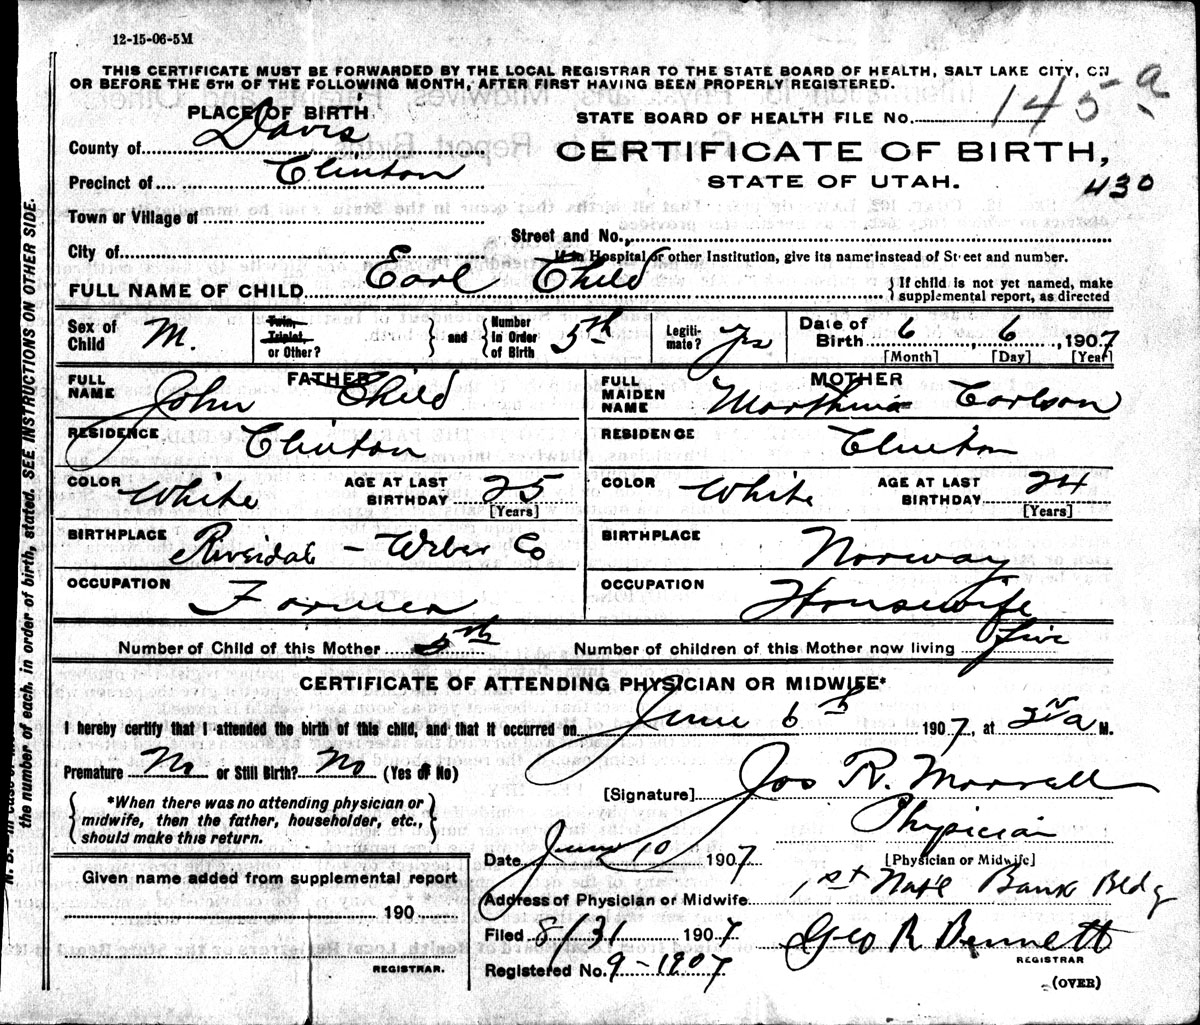 12-15-06-5M
THIS CERTIFICATE MUST BE FORWARDED BY THE LOCAL REGISTRAR TO THE STATE BOARD OF HEALTH, SALT LAKE CITY, ON
OR BEFORE THE 5TH OF THE FOLLOWING MONTH, AFTER FIRST HAVING BEEN PROPERLY REGISTERED.
PLACE OF BIRTH
STATE BOARD OF HEALTH FILE No. 145 a
County of Davis
CERTIFICATE OF BIRTH,
Precinct of Clinton
STATE OF UTAH.
430
Town or Village of
Street and No.
City of
If in Hospital or other Institution, give its name instead of Street and number.
FULL NAME OF CHILD Earl Child
{ If child is not yet named, make
supplemental report, as directed
Sex of Child M.
Twin, Triplet, or Other?
and
Number in Order of Birth 5th
Legitimate? Yes
Date of Birth 6, 6, 1907
[Month] [Day] [Year]
FATHER
FULL NAME John Child
MOTHER
FULL MAIDEN NAME Marthina Carlson
RESIDENCE Clinton
RESIDENCE Clinton
COLOR White AGE AT LAST BIRTHDAY 25 [Years]
COLOR White AGE AT LAST BIRTHDAY 24 [Years]
BIRTHPLACE Riverdale - Weber Co
BIRTHPLACE Norway
OCCUPATION Farmer
OCCUPATION Housewife
Number of Child of this Mother 5th
Number of children of this Mother now living five
CERTIFICATE OF ATTENDING PHYSICIAN OR MIDWIFE*
I hereby certify that I attended the birth of this child, and that it occurred on June 6th 1907, at 2 a M.
Premature No or Still Birth? No (Yes or No)
[Signature] Jos R. Morrell
*When there was no attending physician or
midwife, then the father, householder, etc.,
should make this return.
Physician
[Physician or Midwife]
Date June 10 1907
Address of Physician or Midwife 1st Natl Bank Bldg
Given name added from supplemental report
190
REGISTRAR.
Filed 8/31 1907
Geo R Bennett
REGISTRAR
Registered No. 9-1907
(OVER)
the number of each, in order of birth, stated. SEE INSTRUCTIONS ON OTHER SIDE.